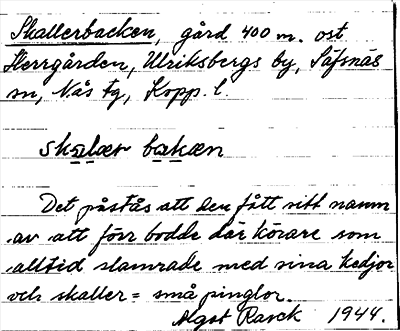 Skallerbacken, gård 400 m. ost
Herrgården, Ulriksbergs by, Säfsnäs
sn, Nås tg, Kopp. l.
skalær bakæn
Det påstås att den fått sitt namn
av att förr bodde där körare som
alltid slamrade med sina kedjor
och skaller = små pinglor.
Algot Rarck 1944.